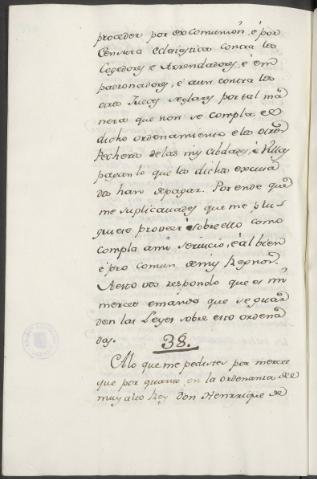 proceder por excomunion, é por
Censura eclaigstica contra los
Cogedores e Arrendadores, é em
padronadores, é aun contra los
otros Jueces seglares por tal ma
nera que non se compla el
dicho ordenamiento e los otros
Pecheros de las mis cibdades, é Villas
pagan lo que los dichos escusa
dos han de pagar. Porende que
me suplicavades que me plu
guiese proveer sobre ello como
compla a mi servicio, e al bien
é pro comun de mis Regnos.
A esto vos respondo que es mi
merced e mando que se guar
den las Leyes sobre esto ordena
das.
38.
A lo que me pedistes por merced
que por quanto en la ordenanza del
muy alto Rey Don Henrrique de